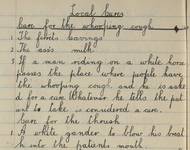 Local Cures
Cure for the whooping cough
1 The ferrets leavings
2 The ass's milk
3 If a man riding on a white horse
passes the place where people have
the whooping cough and he is aske
d for a cure. Whatever he tells the pat
ient to take is considered a cure.
Cure for the thrush
1. A white gander to blow his breat
h into the patients mouth